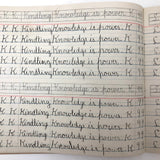 K. K. Kindling Knowledge is power. K
K. K. Kindling Knowledge is power. K
K. K. Kindling Knowledge is power. K
K. K. Kindling Knowledge is power. K
K. K. Kindling Knowledge is power. K
K. K. Kindling Knowledge is power. K
K. K. Kindling Knowledge is power. K
K. K. Kindling Knowledge is power. K
K. K. Kindling Knowledge is power. K